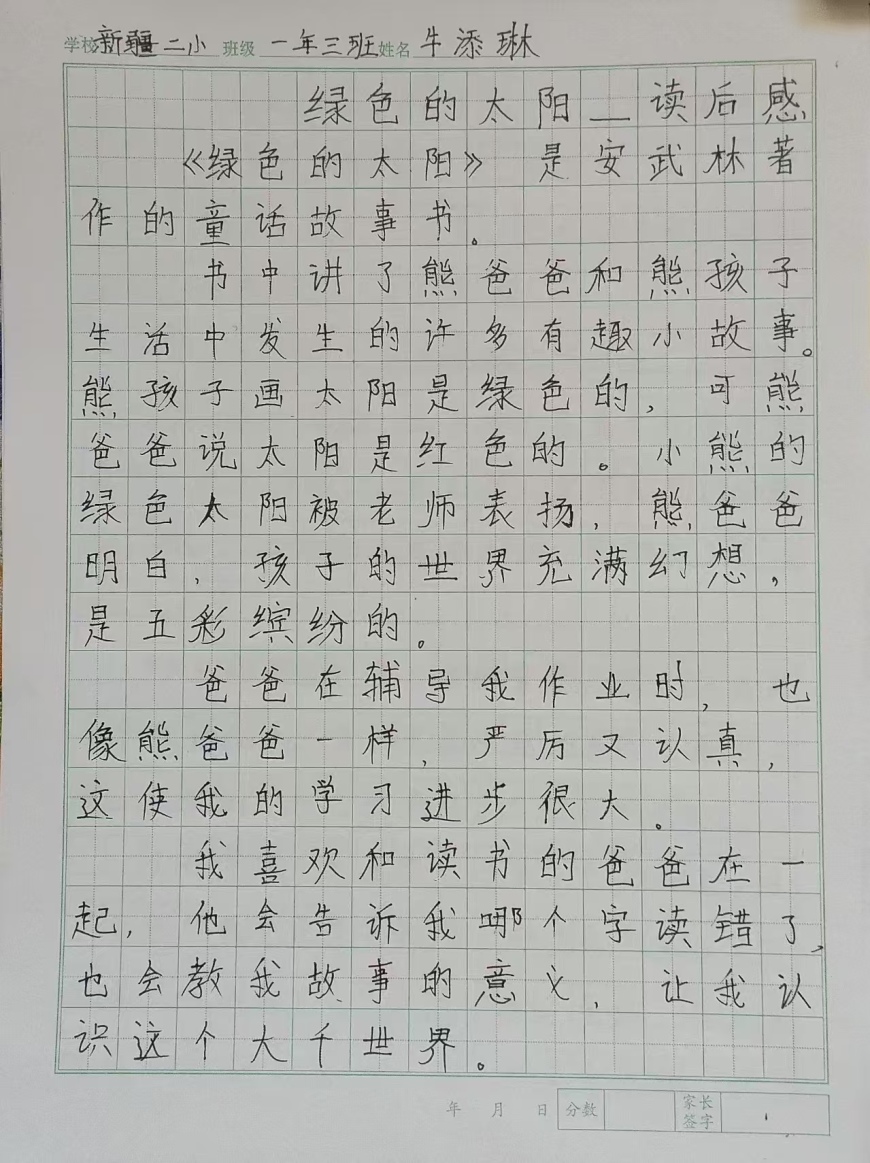 学校新疆二小 班级 一年三班 姓名 牛添琳
绿色的太阳——读后感
《绿色的太阳》 是安武林著
作的童话故事书。
书中讲了熊爸爸和熊孩子
生活中发生的许多有趣小故事。
熊孩子画太阳是绿色的，可熊
爸爸说太阳是红色的。小熊的
绿色太阳被老师表扬，熊爸爸
明白，孩子的世界充满幻想，
是五彩缤纷的。
爸爸在辅导我作业时，也
像熊爸爸一样，严厉又认真，
这使我的学习进步很大。
我喜欢和读书的爸爸在一
起，他会告诉我哪个字读错了，
也会教我故事的意义，让我认
识这个大千世界。
年 月 日 分数 家长签字